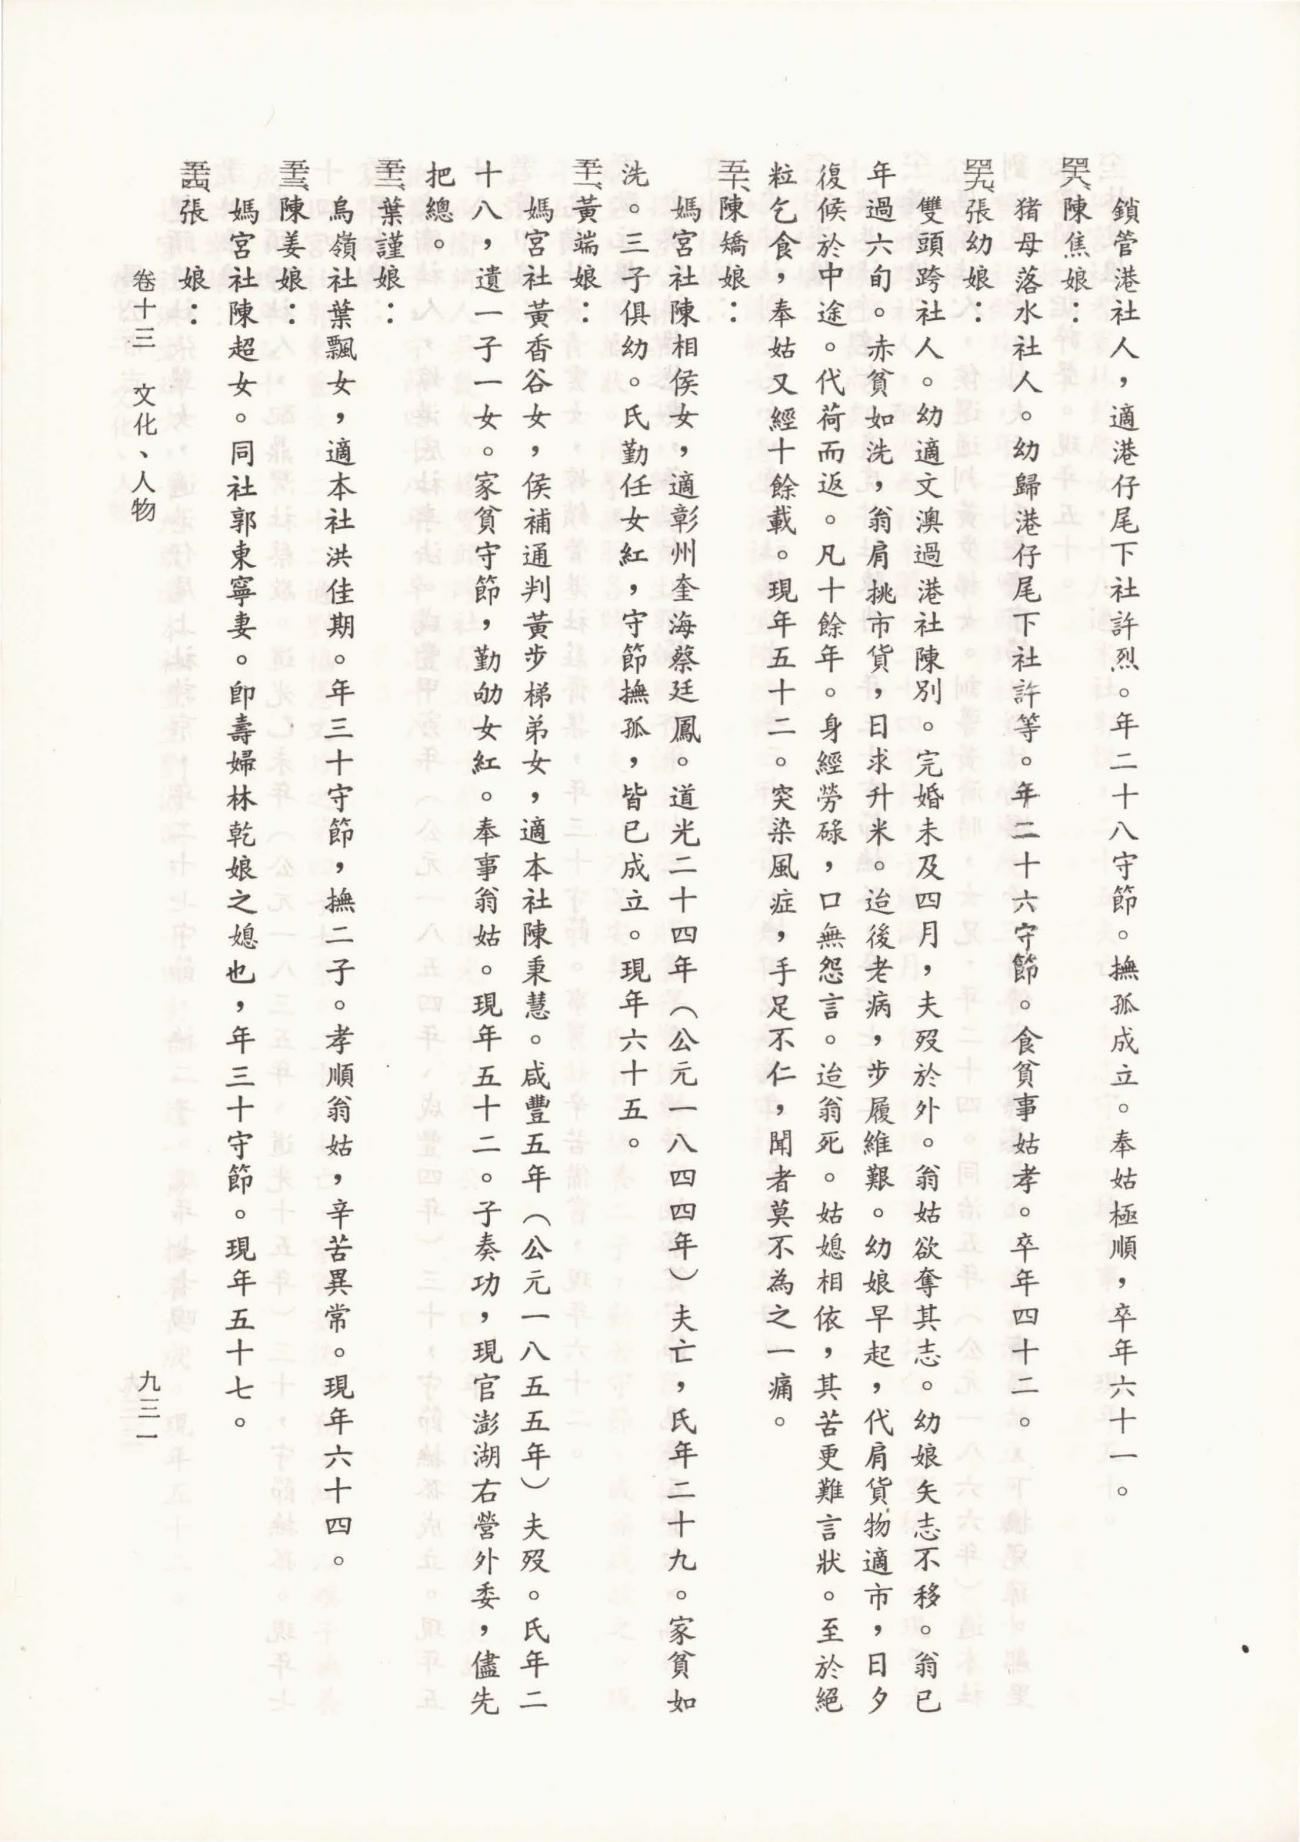 鎖管港社人，適港仔尾下社許烈。年二十八守節。撫孤成立。奉姑極順，卒年六十一。
四六、陳焦娘：
豬母落水社人。幼歸港仔尾下社許等。年二十六守節。食貧事姑孝。卒年四十二。
四九、張幼娘：
雙頭跨社人。幼適文澳過港社陳別。完婚未及四月，夫歿於外。翁姑欲奪其志。幼娘矢志不移。翁已
年過六旬。赤貧如洗，翁肩挑市貨，日求升米。迨後老病，步履維艱。幼娘早起，代肩貨物適市，日夕
復候於中途。代荷而返。凡十餘年。身經勞碌，口無怨言。迨翁死。姑媳相依，其苦更難言狀。至於絕
粒乞食，奉姑又經十餘載。現年五十二。突染風症，手足不仁，聞者莫不為之一痛。
五十、陳嬌娘：
媽宮社陳相侯女，適彰州奎海蔡廷鳳。道光二十四年（公元一八四四年）夫亡，氏年二十九。家貧如
洗。三子俱幼。氏勤任女紅，守節撫孤，皆已成立。現年六十五。
五十一、黃端娘：
媽宮社黃香谷女，侯補通判黃步梯弟女，適本社陳秉慧。咸豐五年（公元一八五五年）夫歿。氏年二
十八，遺一子一女。家貧守節，勤劬女紅。奉事翁姑。現年五十二。子奏功，現官澎湖右營外委，儘先
把總。
五十二、葉謹娘：
烏嶺社葉飄女，適本社洪佳期。年三十守節，撫二子。孝順翁姑，辛苦異常。現年六十四。
五十三、陳姜娘：
媽宮社陳超女。同社郭東寧妻。卽壽婦林乾娘之媳也，年三十守節。現年五十七。
五十四、張　娘：
卷十三　文化、人物
九三一